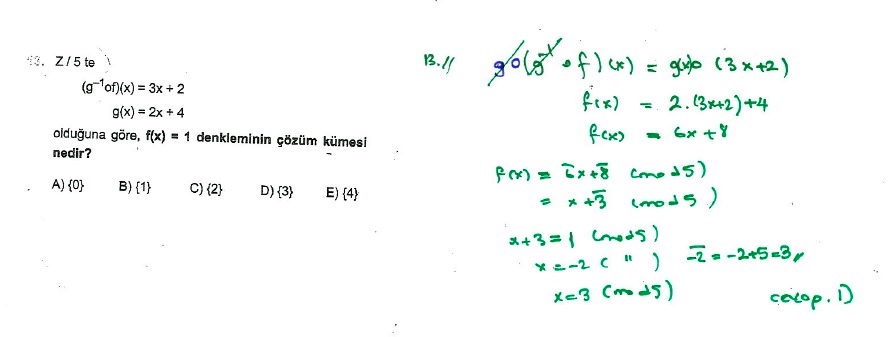 13. Z/5 te
(g⁻¹of)(x) = 3x + 2
g(x) = 2x + 4
olduğuna göre, f(x) = 1 denkleminin çözüm kümesi
nedir?
A) {0} B) {1} C) {2} D) {3} E) {4}
13.//
go(g⁻¹∘f)(x) = g(x)o (3x+2)
f(x) = 2.(3x+2)+4
f(x) = 6x+8
f(x) = 6x+8 (mod 5)
= x+3 (mod 5)
x+3=1 (mod5)
x=-2 ( " ) -2 = -2+5=3//
x=3 (mod5)
cevap. D